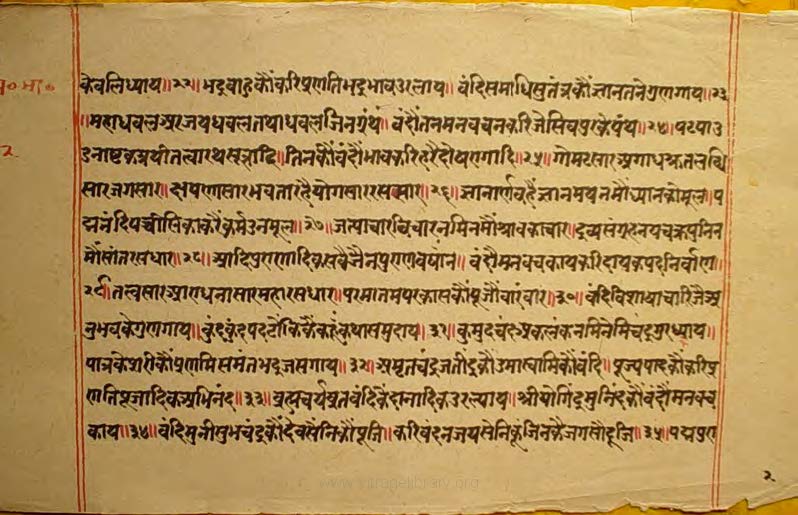 केवलिध्याय॥२२॥भद्रबाहुकौंकरिप्रणतिभद्रभावउरलाय॥ वंदिसमाधिसुतंत्रकौंज्ञानतनेगुणगाय॥२३
॥महाधवलअरजयधवलतथाधवलजिनग्रंथ॥ वंदौंतनमनवचनकरिजेसिवपुरकेपंथ॥२४॥षटपाउ
डनाष्टकअथीतत्वारथसूत्रादि॥तिनकौंवंदौंभावकरिहरैदोषरागादि॥२५॥गोमटसारअगाधश्रुतलब्धि
सारजगसार॥क्षपणासारभवतारहैयोगसाररससार॥२६॥ज्ञानार्णवहैज्ञानमयनमौंध्यानकौमूल॥प
द्मनंदिपच्चीसिकाकरैकर्मउनमूल॥२७॥जत्याचारविचारनमिनमौंश्रावकाचार॥द्रव्यसंग्रहनयचक्रफुनिन
मौंसांतरसधार॥२८॥आदिपुराणादिकसबैजैनपुराणवषांन॥ वंदौंमनवचकायकरिदायकपदनिर्वाण॥
२९॥तत्वसारआराधनासारमहारसधार॥परमातमपरकासकौंपूजौंवारंवार॥३०॥वंदिविशाषाचारिजैअ
नुभवकेगुणगाय॥कुंदकुंदपदढोकिकैंकहूंकथासमुदाय॥३१॥कुमुदचंद्रअकलंकनमिनेमिचंद्रगुरध्याय॥
पात्रकेशरीकौंप्रणमिसमंतभद्रजसगाय॥३२॥अमृतचंद्रजतीद्रकौंउमास्वामिकौंवंदि॥पूज्यपादकौंकरिप्र
णतिपूजादिकअभिनंद॥३३॥ब्रह्मचर्यव्रतवंदिकैंदानादिकउरल्याय॥श्रीयोगिंद्रमुनिंदकौंवंदौंमनवच
काय॥३४॥वंदिमुनीसुभचंद्रकौंदेवसेनिकौंपूजि॥करिवंदनजयसेनिकूंजिनकैजगसौंदूजि॥३५॥पद्मपुरा
२
www.vitragelibrary.org